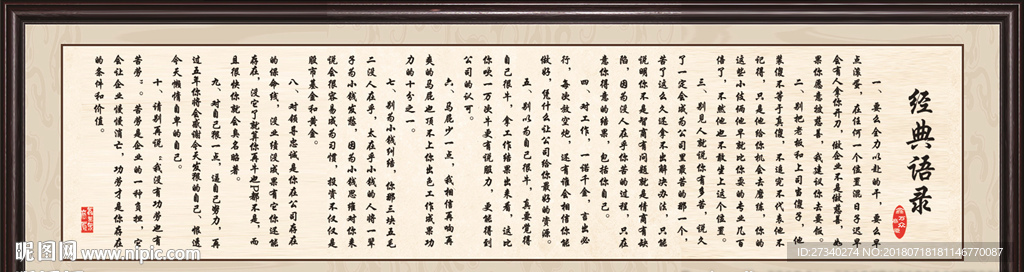 经典语录
一、要么全力以赴的干，要么早
点滚蛋，在任何一个位置混日子迟早
会有人拿你开刀，做企业不是做慈善，如
果你愿意放慈善，我建议你去要饭。
二、别把老板和上司当傻子，他
装傻不等于真傻，不追究不代表他不
记得，只是他给你机会去磨练，你的
这些小伎俩他早就比你耍的专业几百
倍了，不然他也不敢坐上这个位置。
三、别见人就说你有多苦，说久
了一定会成为公司里最苦的那一个，
苦了这么久还拿不出解决办法，只能
说明你不是智商有问题就是情商有缺
陷，因为没人在乎你苦的过程，只在
意你得意的结果，包括你自己。
四、对工作，一诺千金，言出必
行，每次放空炮，还有谁会相信你能
做好，凭什么让公司给你最好的资源。
五、别以为自己很牛，真要觉得
自己很牛，拿工作结果出来看，这比
你吹一万次牛更有说服力，更能得到
公司的认可。
六、马屁少一点，我相信再响再
爽的马屁也顶不上你出色工作成果功
力的十分之一。
七、别为小钱纠结，你那三块五毛
二没人在乎，太在乎小钱的人将一辈
子为小钱发愁，因为小钱思维对你来
说会很容易成为习惯，投资不仅仅是
股市基金和黄金。
八、对领导忠诚是你在公司存在
的保命线，没业绩没成果有它你还能
存在，没它了就算你再牛也P都不是，而
且很快你就会臭名昭著。
九、对自己狠一点，逼自己努力，再
过五年你将会感谢今天发狠的自己、恨透
今天懒惰自卑的自己。
十、请别再说“我没有功劳也有
苦劳”。苦劳是企业的一种负担，它
会让企业慢慢消亡，功劳才是你存在
的条件和价值。
昵图网 www.nipic.com
ID:27340274 NO:20180718181146770087